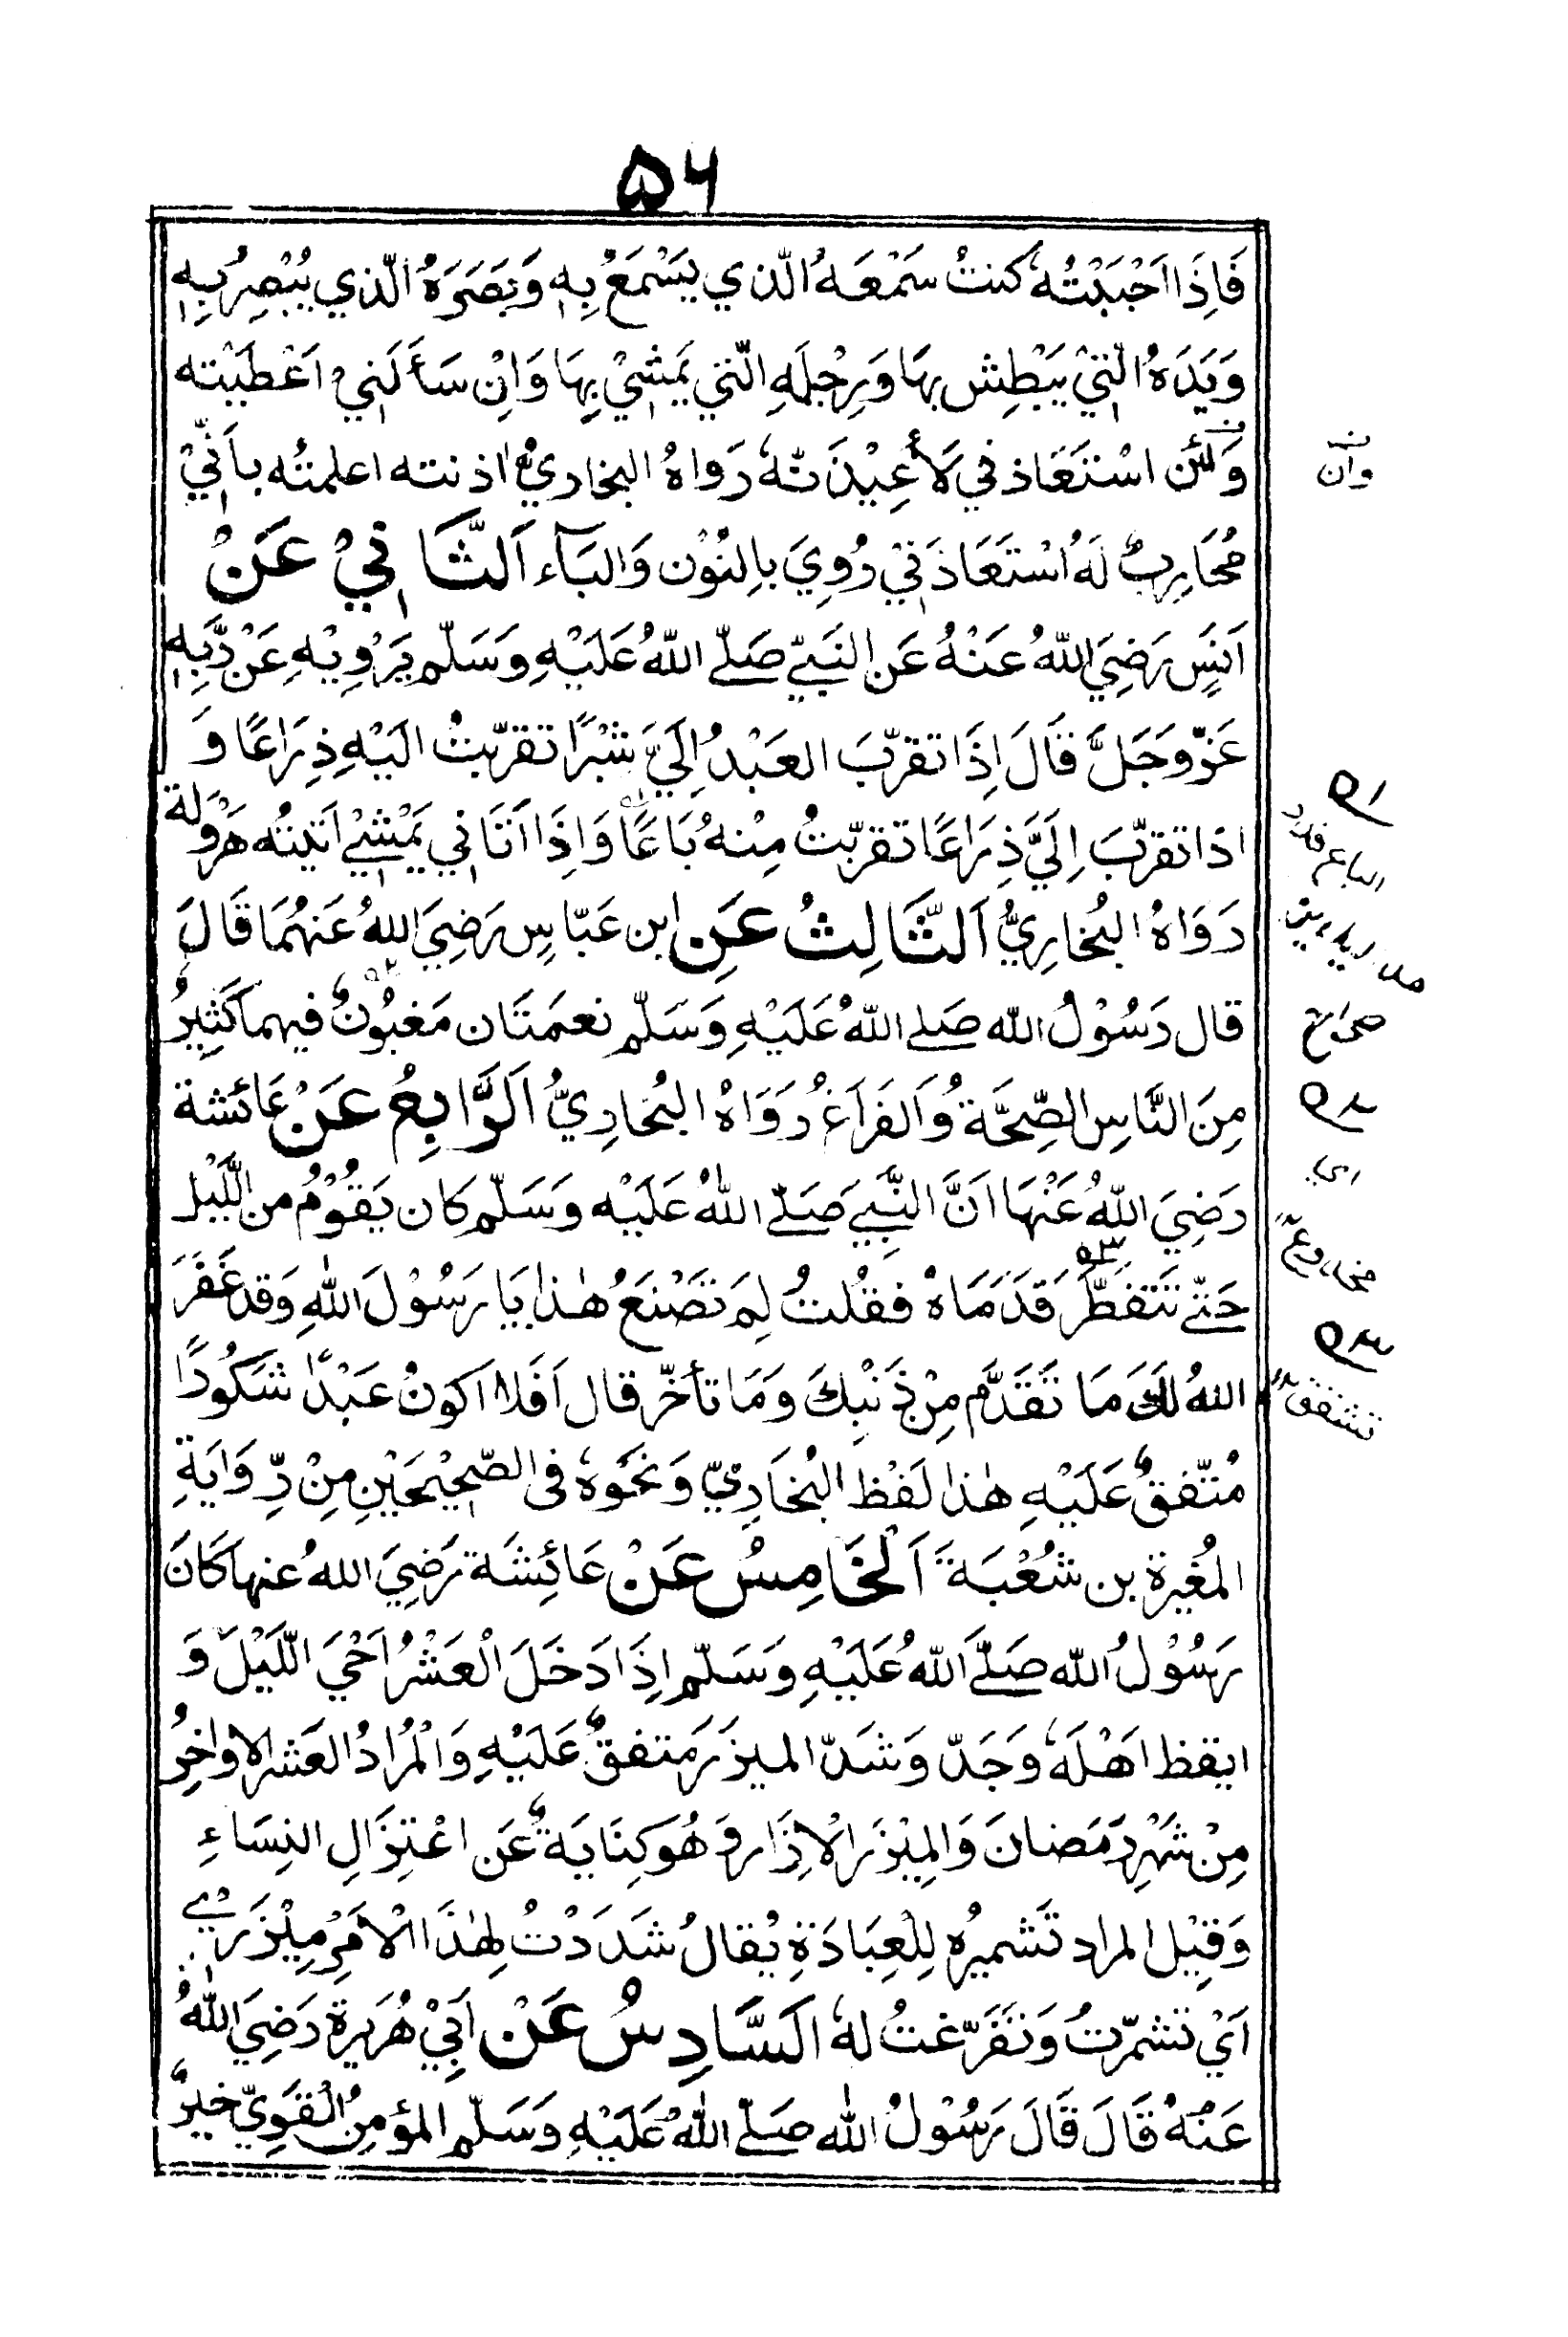 ۵۶
فَاِذَا اَحْبَبْتُهٗ كنتُ سَمْعَهُ الّذي يَسْمَعُ بِهٖ وَبَصَرَهُ الّذي يُبْصِرُ بِهٖ
وَيَدَهُ الّتِيْ يَبْطِش بهَا وَرِجْلَهِ الّتي يَمْشِيْ بِهَا وَاِنْ سَأَلَنِيْ اَعْطَيْته
وَلَئن اسْتَعَاذني لَأُعِيْذَنّهٗ رَواهُ البخاريُّ اذنته اعلمتُه بِاَنِّيْ
مُحَارِبٌ لَهُ اسْتَعَاذَنِيْ رُوِيَ بِالنُوْن وَالبَآء اَلثَّانِيْ عَنْ
اَنَسٍ رَضِيَ اللّٰهُ عَنْهُ عَنِ النَبِيّ صَلّے اللّٰهُ عَلَيْهِ وَسَلّم يَرْوِيْهِ عَنْ رَّبِهٖ
عَزّ وَجَلَّ قَالَ اِذَا تقرّبَ العَبْدُ اِلَيَّ شبْرًا تقرّبتُ الَيْهِ ذِرَاعًا وَ
اذا تقرّبَ اِلَيَّ ذِرَاعًا تقرّبتُ مِنْهُ بَاعًا وَاِذَا اَتَانِي يَمْشِيْ اتيتُه هَرْوَلة
رَوَاهُ البُخارِيُّ اَلثَّالِثُ عَنِ ابن عَبّاسٍ رَضِيَ اللّٰهُ عَنهُمَا قَالَ
قال رَسُوْلُ اللّٰه صَلے اللّٰهُ عَلَيْهِ وَسَلّم نعمَتَان مَغبُوْنٌ فيهما كَثِيرٌ
مِنَ النَّاسِ الصِّحَّة وَالفَرَاغُ رَوَاهُ البُخارِيُّ اَلرَّابِعُ عَنْ عَائشة
رَضِيَ اللّٰهُ عَنْهَا انَّ النَّبِيَ صَلّے اللّٰهُ عَلَيْه وَسَلّم كان يَقُوْمُ من اللَّيْل
حَتّے تَتَفطّرَ قَدَمَاهُ فقُلتُ لِمَ تَصْنَعُ هٰذا يَا رَسُوْلَ اللّٰهِ وَقد غَفَرَ
اللهُ لَكَ مَا تَقَدَّم مِنْ ذَنْبِكَ وَمَا تأخّر قال اَفَلا اكونُ عَبْدًا شَكُورًا
مُتّفقٌ عَلَيْهِ هٰذا لَفْظ البُخَارِيّ وَنَحْوَهٗ فى الصّحِيْحَيْنِ مِنْ رِّوَايَةِ
المُغيرة بن شُعْبَةَ اَلْخَامِسُ عَنْ عَائِشَة رَضِيَ اللهُ عنها كَانَ
رَسُوْلُ اللّٰه صَلَّے اللّٰهُ عَلَيْهِ وَسَلّم اِذَا دَخَلَ الْعَشْرُ اَحْيَ اللَّيْلَ وَ
ايقظ اهْلَهٗ وَجَدّ وَشَدّ الميزَر مَتفقٌ عَلَيْهِ وَالْمُرَادُ العَشر الاواخِرُ
مِنْ شَهْرِ رَمَضانَ وَالمِيْزَر الْاِزَار وَ هُوَ كِنَايَةٌ عَن اعْتِزَالِ النِسَاءِ
وَقِيْل المراد تَشميرُه لِلْعِبَادَةِ يُقالُ شَدَدْتُ لِهٰذَا الْاَمْرِ مِيْزَرِيْ
اَيْ تشمّرتُ وَتَفَرّغتُ لهٗ اَلسَّادِسُ عَنْ اَبِيْ هُرَيرة رَضِيَ اللّٰهُ
عَنْهُ قَالَ قَالَ رَسُوْلُ اللّٰه صَلّے اللّٰهُ عَلَيْهِ وَسَلّم المؤمِنُ الْقَوِيّ خيرٌ
وان
صراح
اي
تشقق